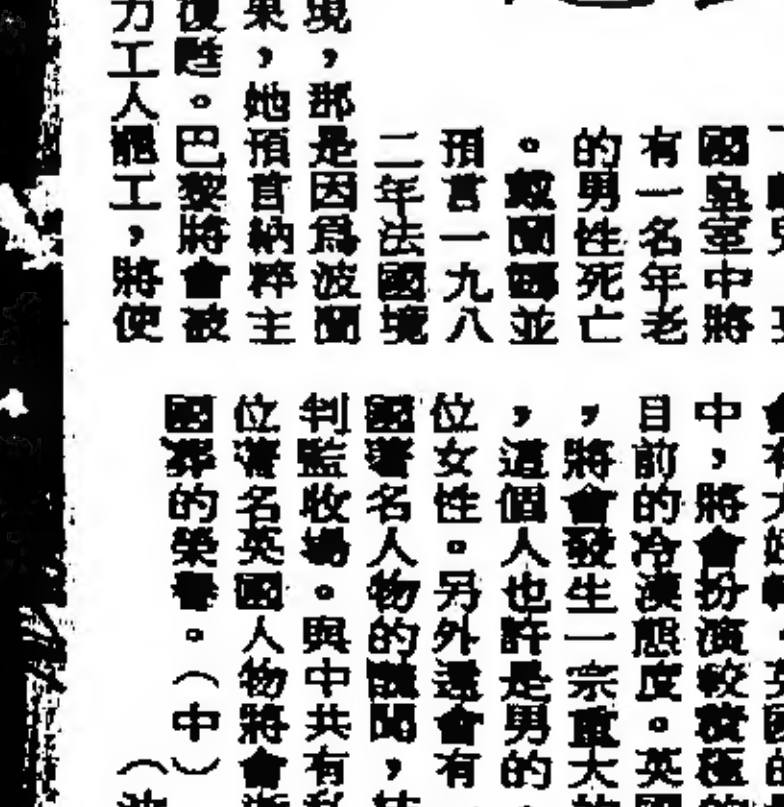 國皇室中將
有一名年老
的男性死亡
。戴蘭碼並
預言一九八
二年法國境
境,那是因為波蘭
果,她預言納粹主
復甦。巴黎將會被
力工人罷工,將使
中,將會扮演較積極
目前的冷漠態度。英國
,將會發生一宗重大
,這個人也許是男的
位女性。另外還會有
國著名人物的醜聞,
判監收場。與中共有私
位著名英國人物將會
國葬的榮譽。(中)